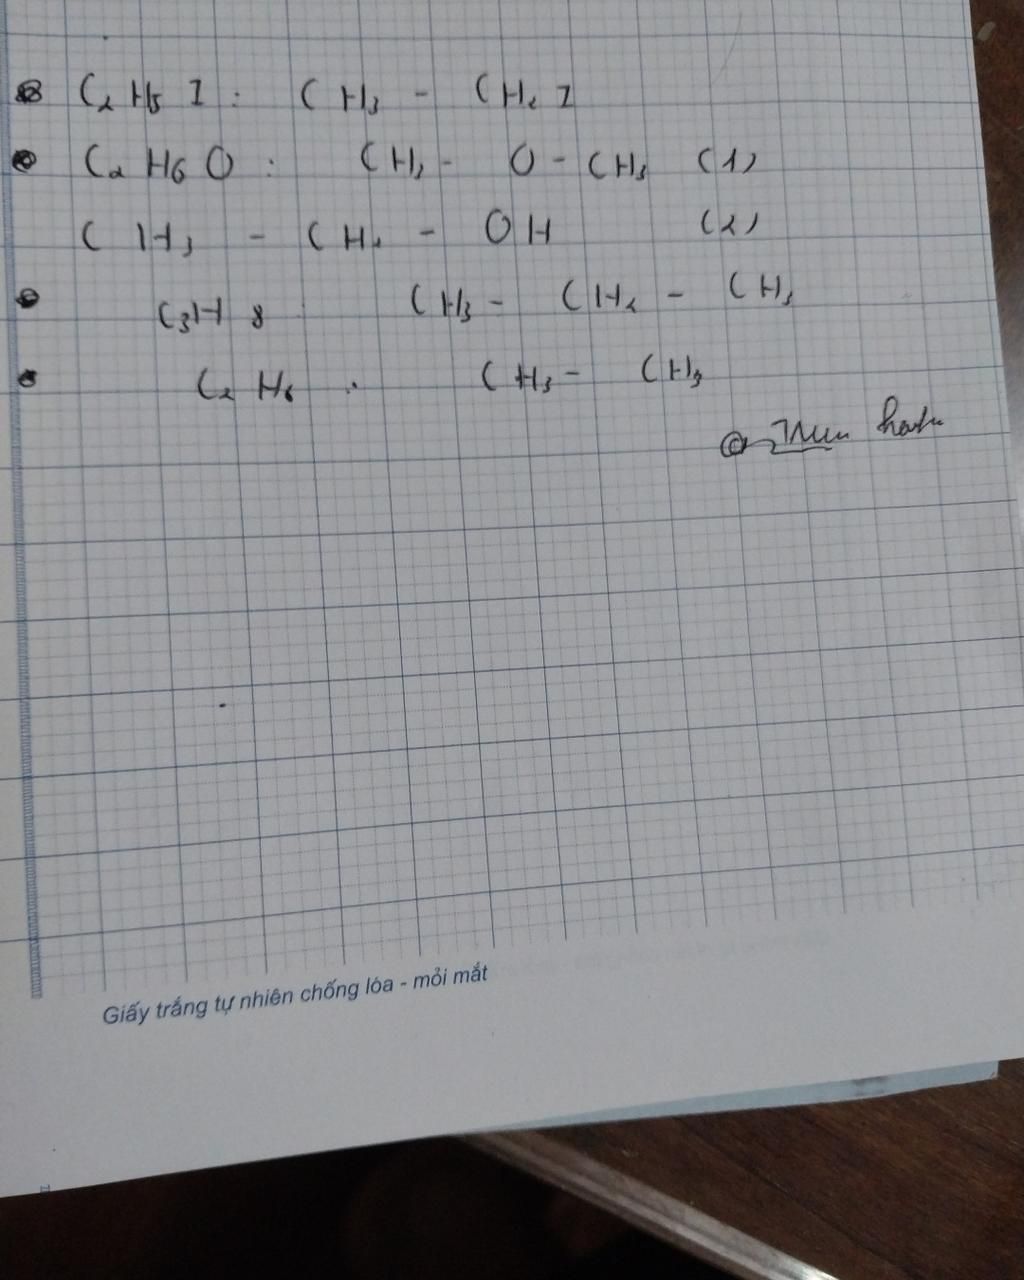 C2H5I : CH3 - CH2I
C2H6O : CH3 - O - CH3 (1)
CH3 - CH2 - OH (2)
C3H8 : CH3 - CH2 - CH3
C2H6 : CH3 - CH3
Giấy trắng tự nhiên chống lóa - mỏi mắt